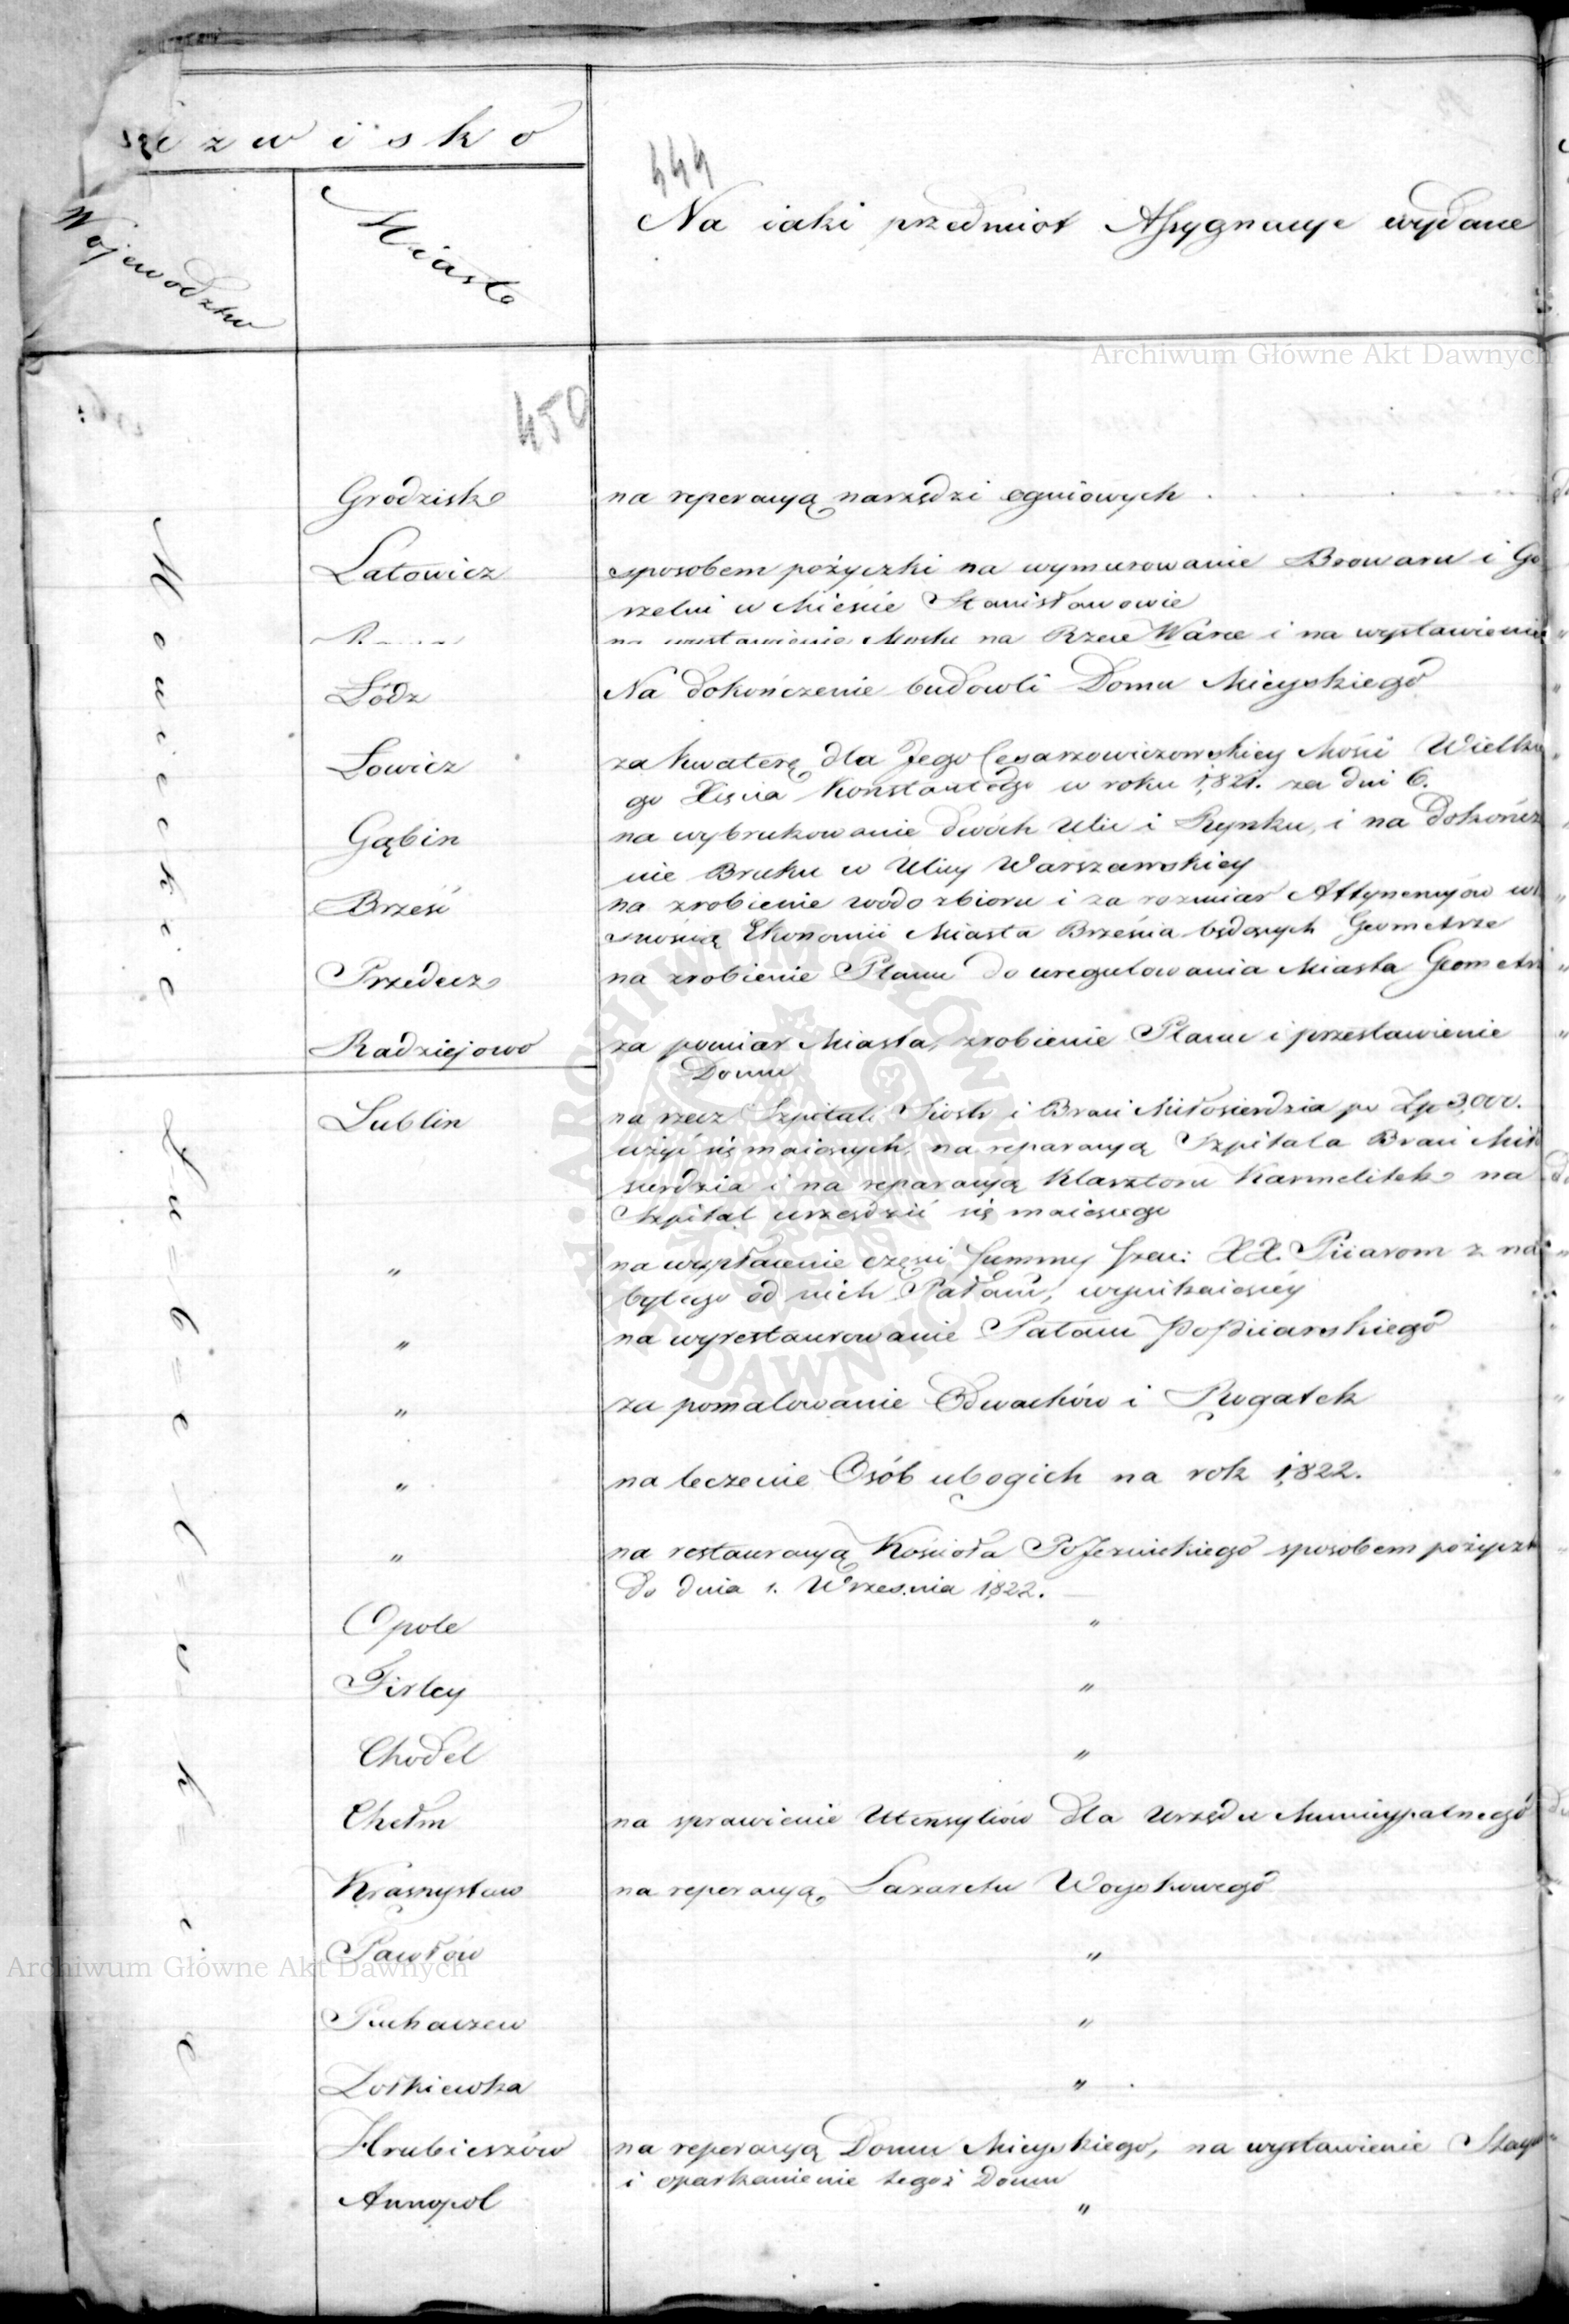 zwisko
444
Województwo
Miasto
Na iaki przedmiot Assygnacye wydane
Archiwum Główne Akt Dawnych
450
Mazowieckie
Grodzisk
na reperacyą narzędzi ogniowych
Latowicz
sposobem pożyczki na wymurowanie Browaru i Go
rzelni w Mieście Stanisławowie
na wystawienie Mostu na Rzece Warce i na wystawienie
Łódz
Na dokończenie budowli Domu Mieyskiego
Łowicz
za kwaterę dla Jego Cesarzowiczowskiey Mości Wielkie
go Xięcia Konstantego w roku 1821. za dni 6.
Gąbin
na wybrukowanie dwóch Ulic i Rynku, i na dokończe
nie Bruku w Ulicy Warszawskiey
Brześć
na zrobienie wodozbioru i za rozmiar Attynencyów w
Ekonomii Miasta Brześcia będących Geometrze
Przedecz
na zrobienie Planu do uregulowania Miasta Geometrze
Radziejowo
za pomiar Miasta, zrobienie Planu i przestawienie
Domu
Lubelskie
Lublin
na rzecz Szpitali Siostr i Braci Miłosierdzia po Zp 3,000.
użyć się maiących, na reparacyą Szpitala Braci Miło
sierdzia i na reparacyą Klasztoru Karmelitek na
Szpital urządzić się maiącego
"
na wypłacenie części Summy szac: XX. Piiarom z na
bytego od nich Pałacu, wynikaiącéy
"
na wyrestaurowanie Pałacu PoPiiarskiego
"
za pomalowanie Odwachów i Rogatek
"
na leczenie Osób ubogich na rok 1822.
"
na restauracyą Kościoła PoJezuickiego sposobem pożyczk
do dnia 1. Września 1822.
Opole "
Firley "
Chodel "
Chełm
na sprawienie Utensyliów dla Urzędu Municypalnego
Krasnystaw
na reperacyą Lazaretu Woyskowego
Pawłów "
Archiwum Główne Akt Dawnych
Puchaczew "
Żołkiewka "
Hrubieszów
na reperacyą Domu Mieyskiego, na wystawienie Stayn
i oparkanienie tegoż Domu
Annopol "